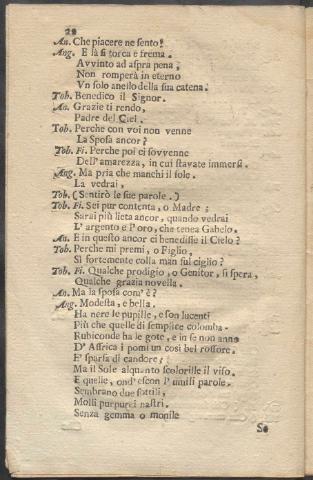 28
An. Che piacere ne sento!
Ang. E là si torca e frema.
Avvinto ad aspra pena,
Non romperà in eterno
Un solo anello della sua catena.
Tob. Benedico il Signor.
An. Grazie ti rendo,
Padre del Ciel.
Tob. Perche con voi non venne
La Sposa ancor?
Tob. Fi. Perche poi ci sovvenne
Dell'amarezza, in cui stavate immersi.
Ang. Ma pria che manchi il sole.
La vedrai,
Tob. (Sentirò le sue parole.)
Tob. Fi. Sei pur contenta, o Madre;
Sarai più lieta ancor, quando vedrai
L'argento e l'oro, che tenea Gabelo.
An. E in questo ancor ci benedisse il Cielo?
Tob. Perche mi premi, o Figlio,
Sì fortemente colla man sul ciglio?
Tob. Fi. Qualche prodigio, o Genitor, si spera,
Qualche grazia novella.
An. Ma la sposa com'è?
Ang. Modesta, e bella.
Ha nere le pupille, e son lucenti
Più che quelle di semplice colomba.
Rubiconde ha le gote, e in se non anno
D'Affrica i pomi un così bel rossore.
E' sparsa di candore;
Ma il Sole alquanto scolorille il viso.
E quelle, ond'escon l'umili parole,
Sembrano due sottili,
Molli purpurei nastri.
Senza gemma o monile
Se